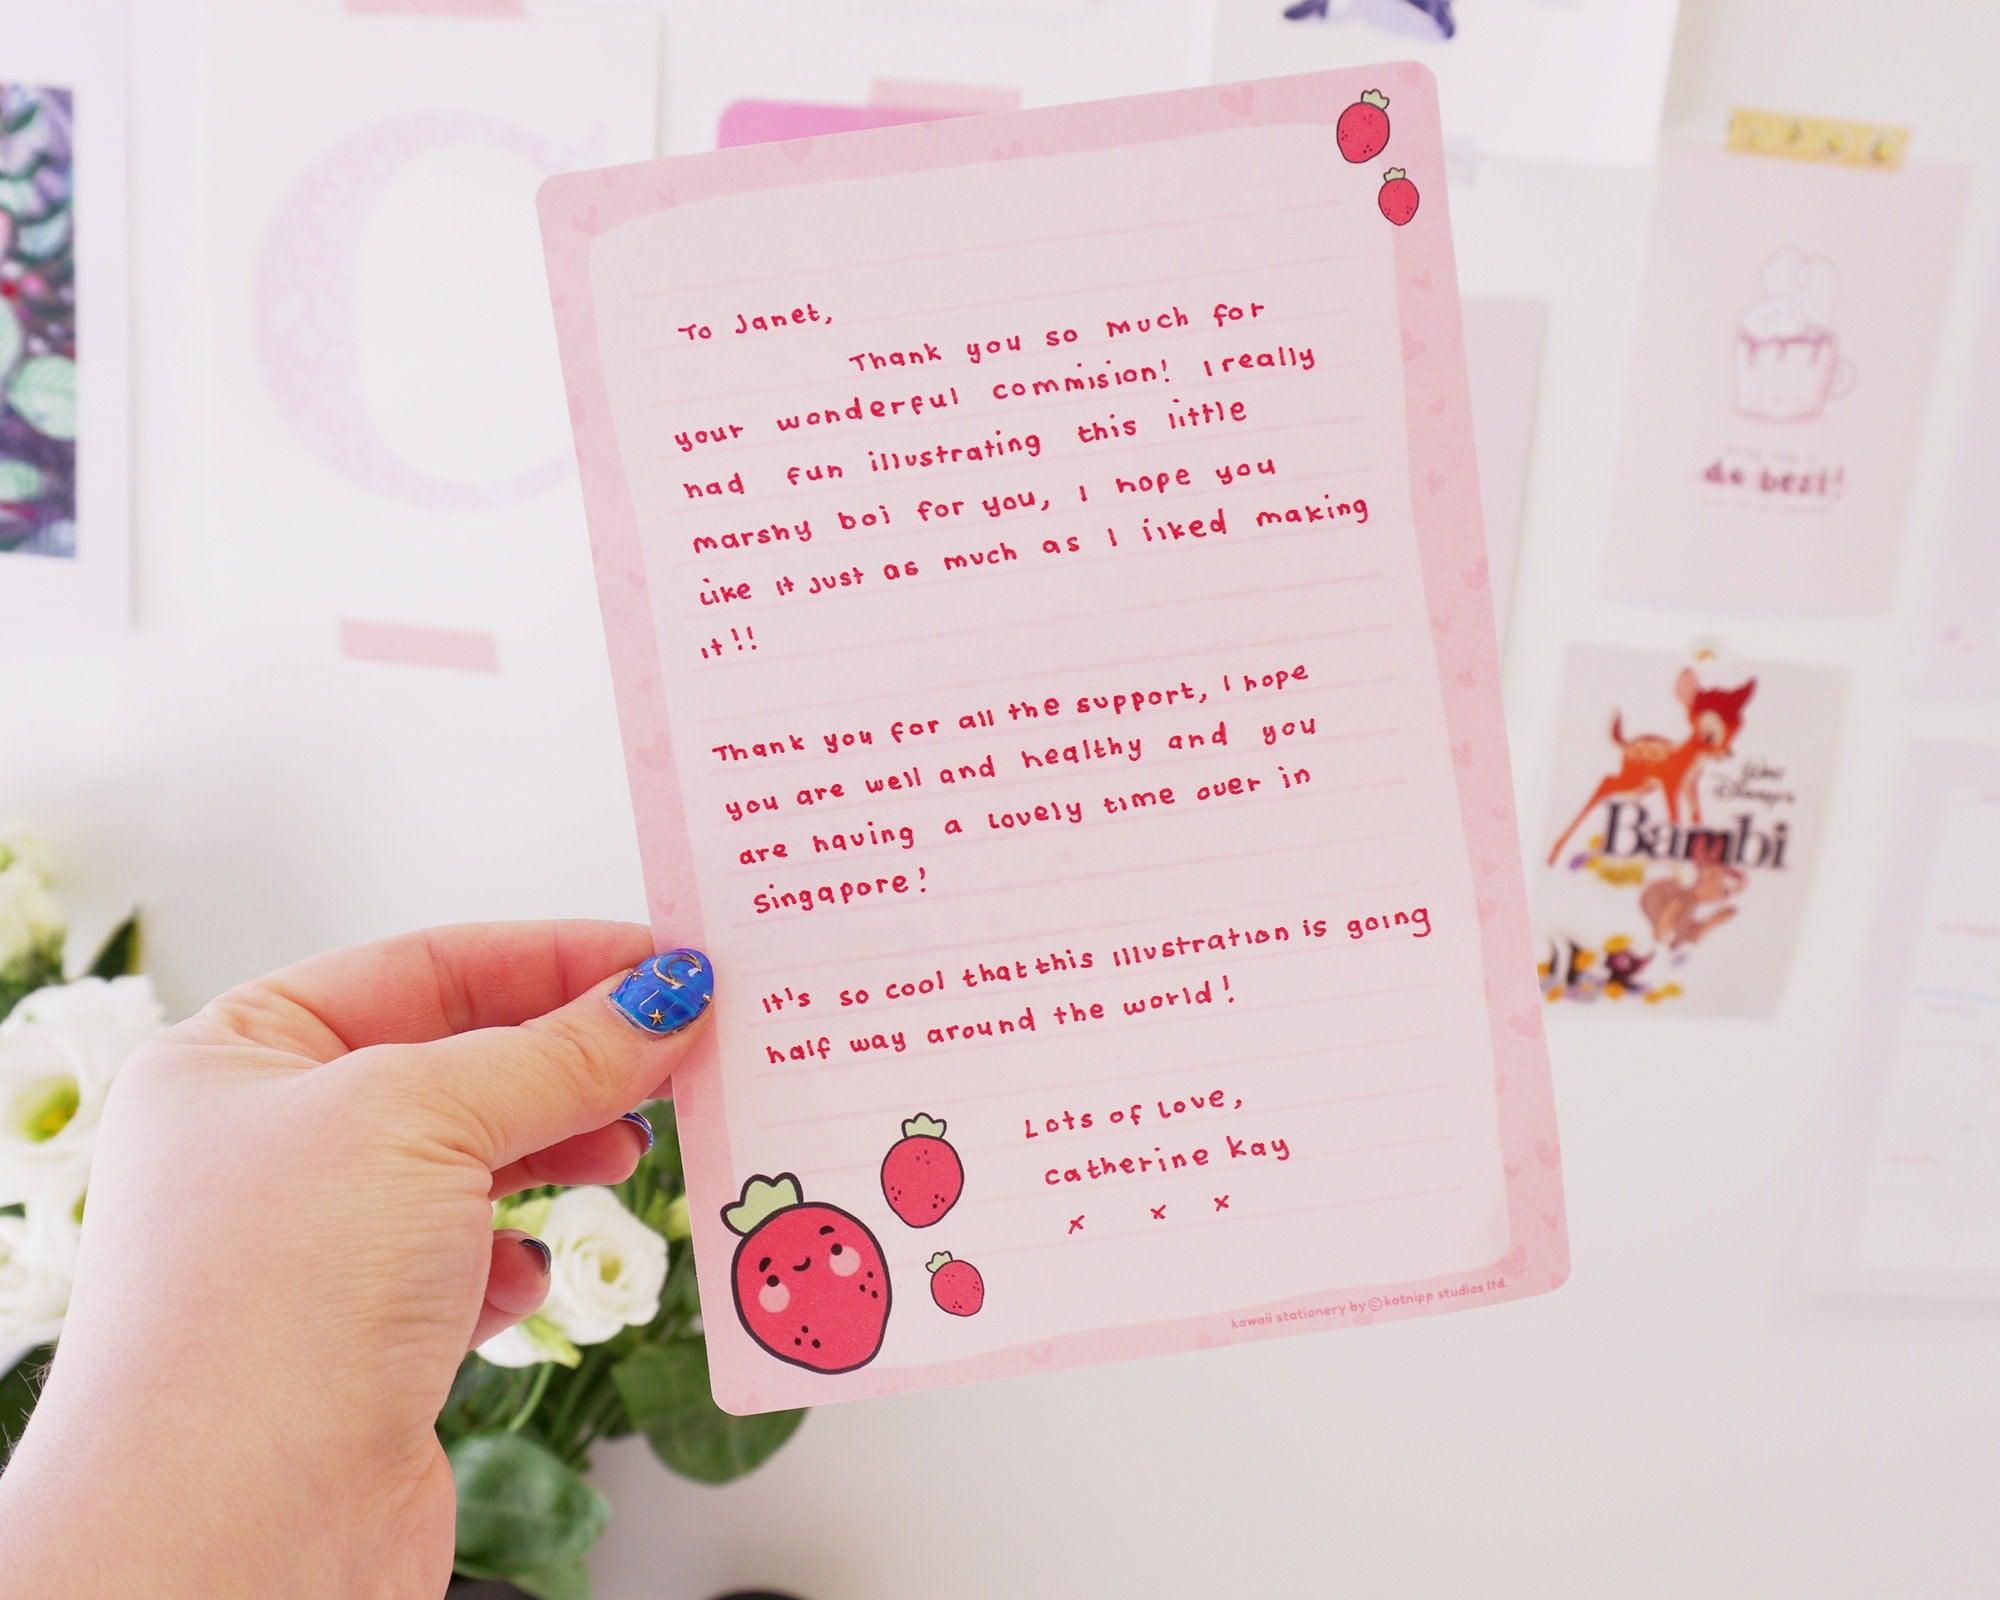 To Janet,
Thank you so much for
your wonderful commision! I really
had fun illustrating this little
marshy boi for you, I hope you
like it just as much as I liked making
it!!
Thank you for all the support, I hope
you are well and healthy and you
are having a lovely time over in
Singapore!
It's so cool that this illustration is going
half way around the world!
Lots of love,
Catherine Kay
x x x
kawaii stationery by © katnipp studios ltd.
do best!
Walt
Disney's
Bambi